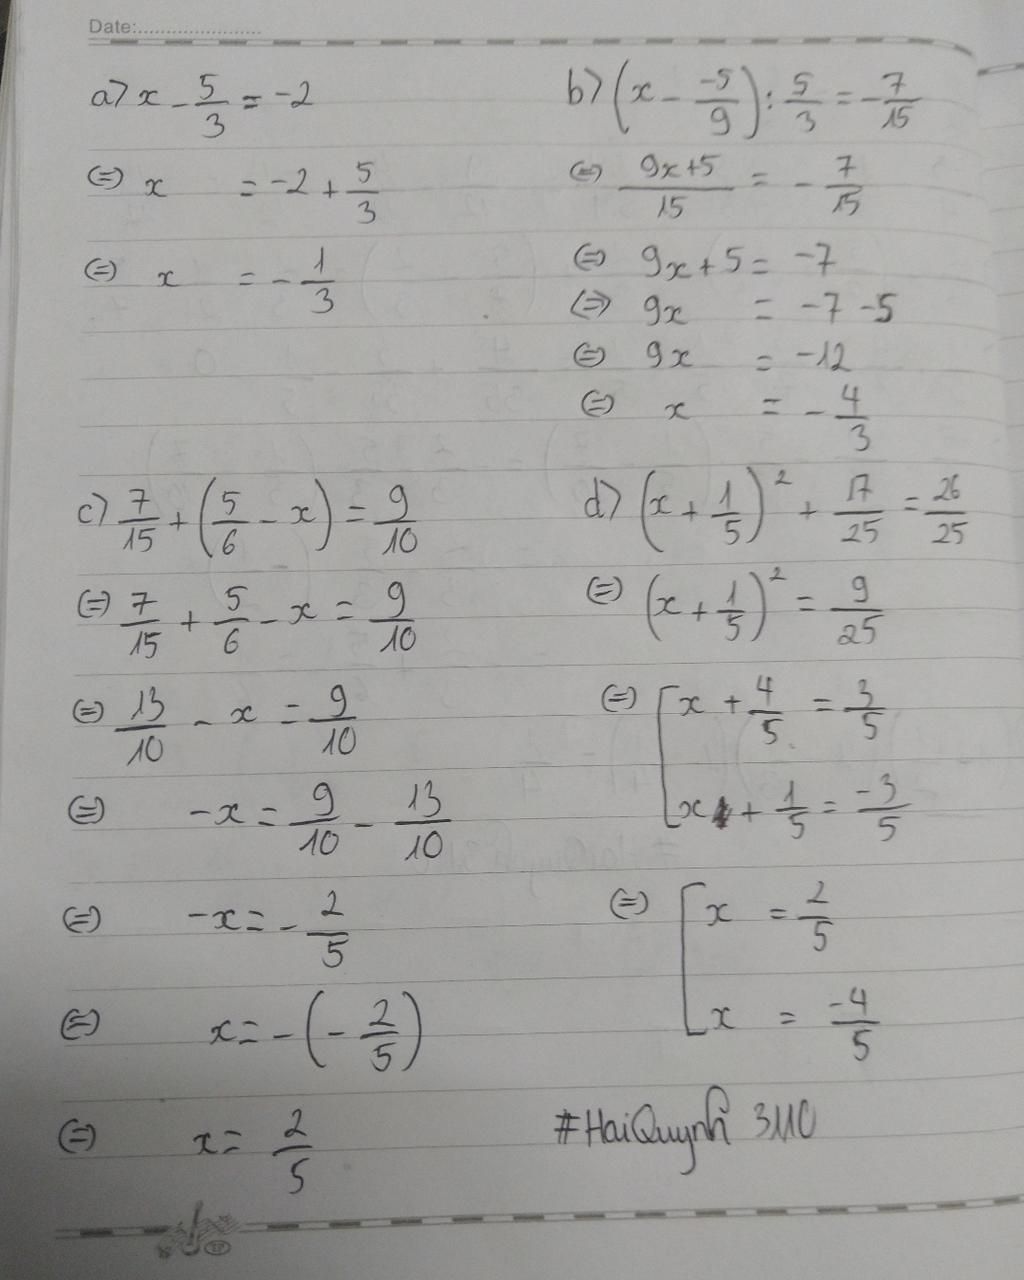 Date:......................
a) x - 5/3 = -2
⇔ x = -2 + 5/3
⇔ x = -1/3
b) (x - -5/9) : 5/3 = -7/15
⇔ (9x+5)/15 = -7/15
⇔ 9x + 5 = -7
⇔ 9x = -7 -5
⇔ 9x = -12
⇔ x = -4/3
c) 7/15 + (5/6 - x) = 9/10
⇔ 7/15 + 5/6 - x = 9/10
⇔ 13/10 - x = 9/10
⇔ -x = 9/10 - 13/10
⇔ -x = -2/5
⇔ x = -(-2/5)
⇔ x = 2/5
d) (x + 1/5)² + 17/25 = 26/25
⇔ (x + 1/5)² = 9/25
⇔ [ x + 4/5 = 3/5
x + 1/5 = -3/5
⇔ [ x = 2/5
x = -4/5
#HaiQuynh 3110